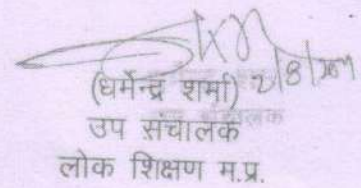 (धर्मेन्द्र शर्मा)
उप संचालक
लोक शिक्षण म.प्र.